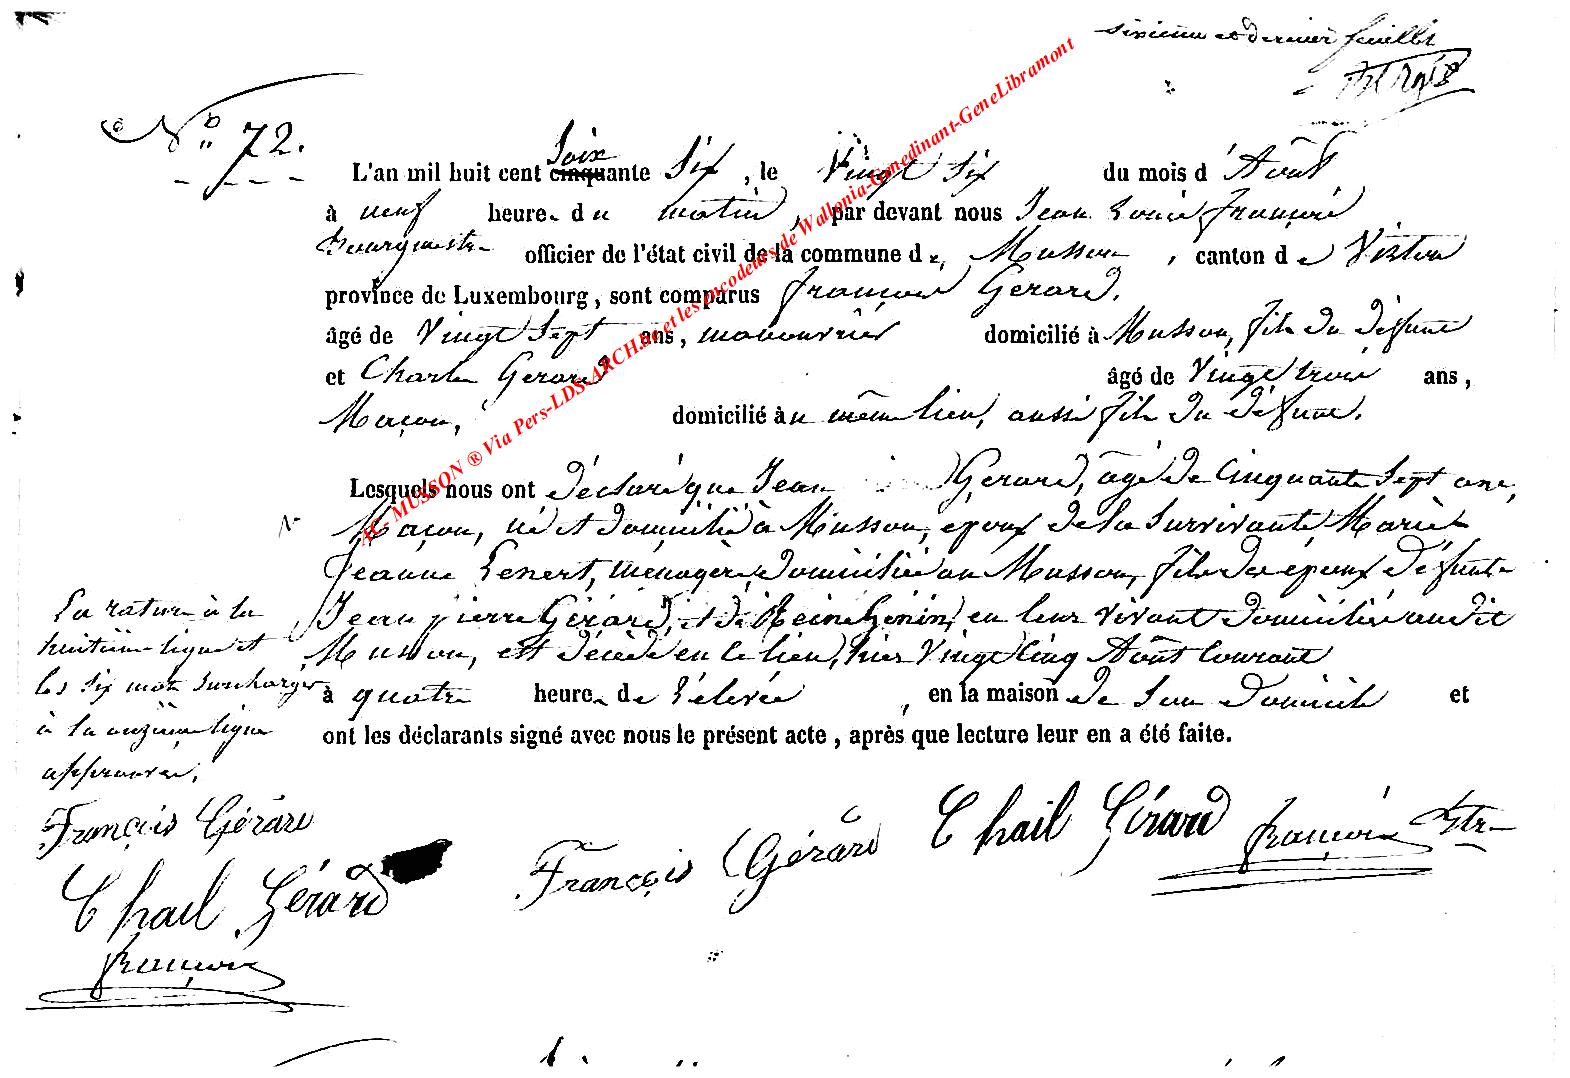 sixième et dernier feuillet
N° 72.
L'an mil huit cent cinquante Soix Six, le Vingt Six du mois d'Août
à neuf heure du matin, par devant nous Jean Louis François
Bourgmestre officier de l'état civil de la commune de Musson, canton de Virton
province de Luxembourg, sont comparus François Gerard,
âgé de Vingt Sept ans, manouvrier domicilié à Musson, fils du défunt
et Charles Gerard âgé de Vingt trois ans,
Maçon, domicilié au même lieu, aussi fils du défunt.
Lesquels nous ont déclaré que Jean Gerard, âgé de Cinquante Sept ans,
Maçon, né et domicilié à Musson, époux de la Survivante Marie
Jeanne Lenert, ménagère domiciliée au Musson, fils des époux défunts
Jean pierre Gérard, et de Reine Génin, en leur vivant domiciliés audit
Musson, est décédé en ce lieu, hier Vingt Cinq Août Courant
à quatre heure de rélevée, en la maison de Son domicile et
ont les déclarants signé avec nous le présent acte, après que lecture leur en a été faite.
La rature à la
huitième ligne et
les Six mots Surchargés
à la onzième ligne
approuvés.
François Gérard
Charl Gérard
François
François Gérard Charl Gérard François Bstre
E. MUSSON ® Via Pers-LDS-ARCH.be et les encodeurs de Wallonia-Genedinant-GeneLibramont